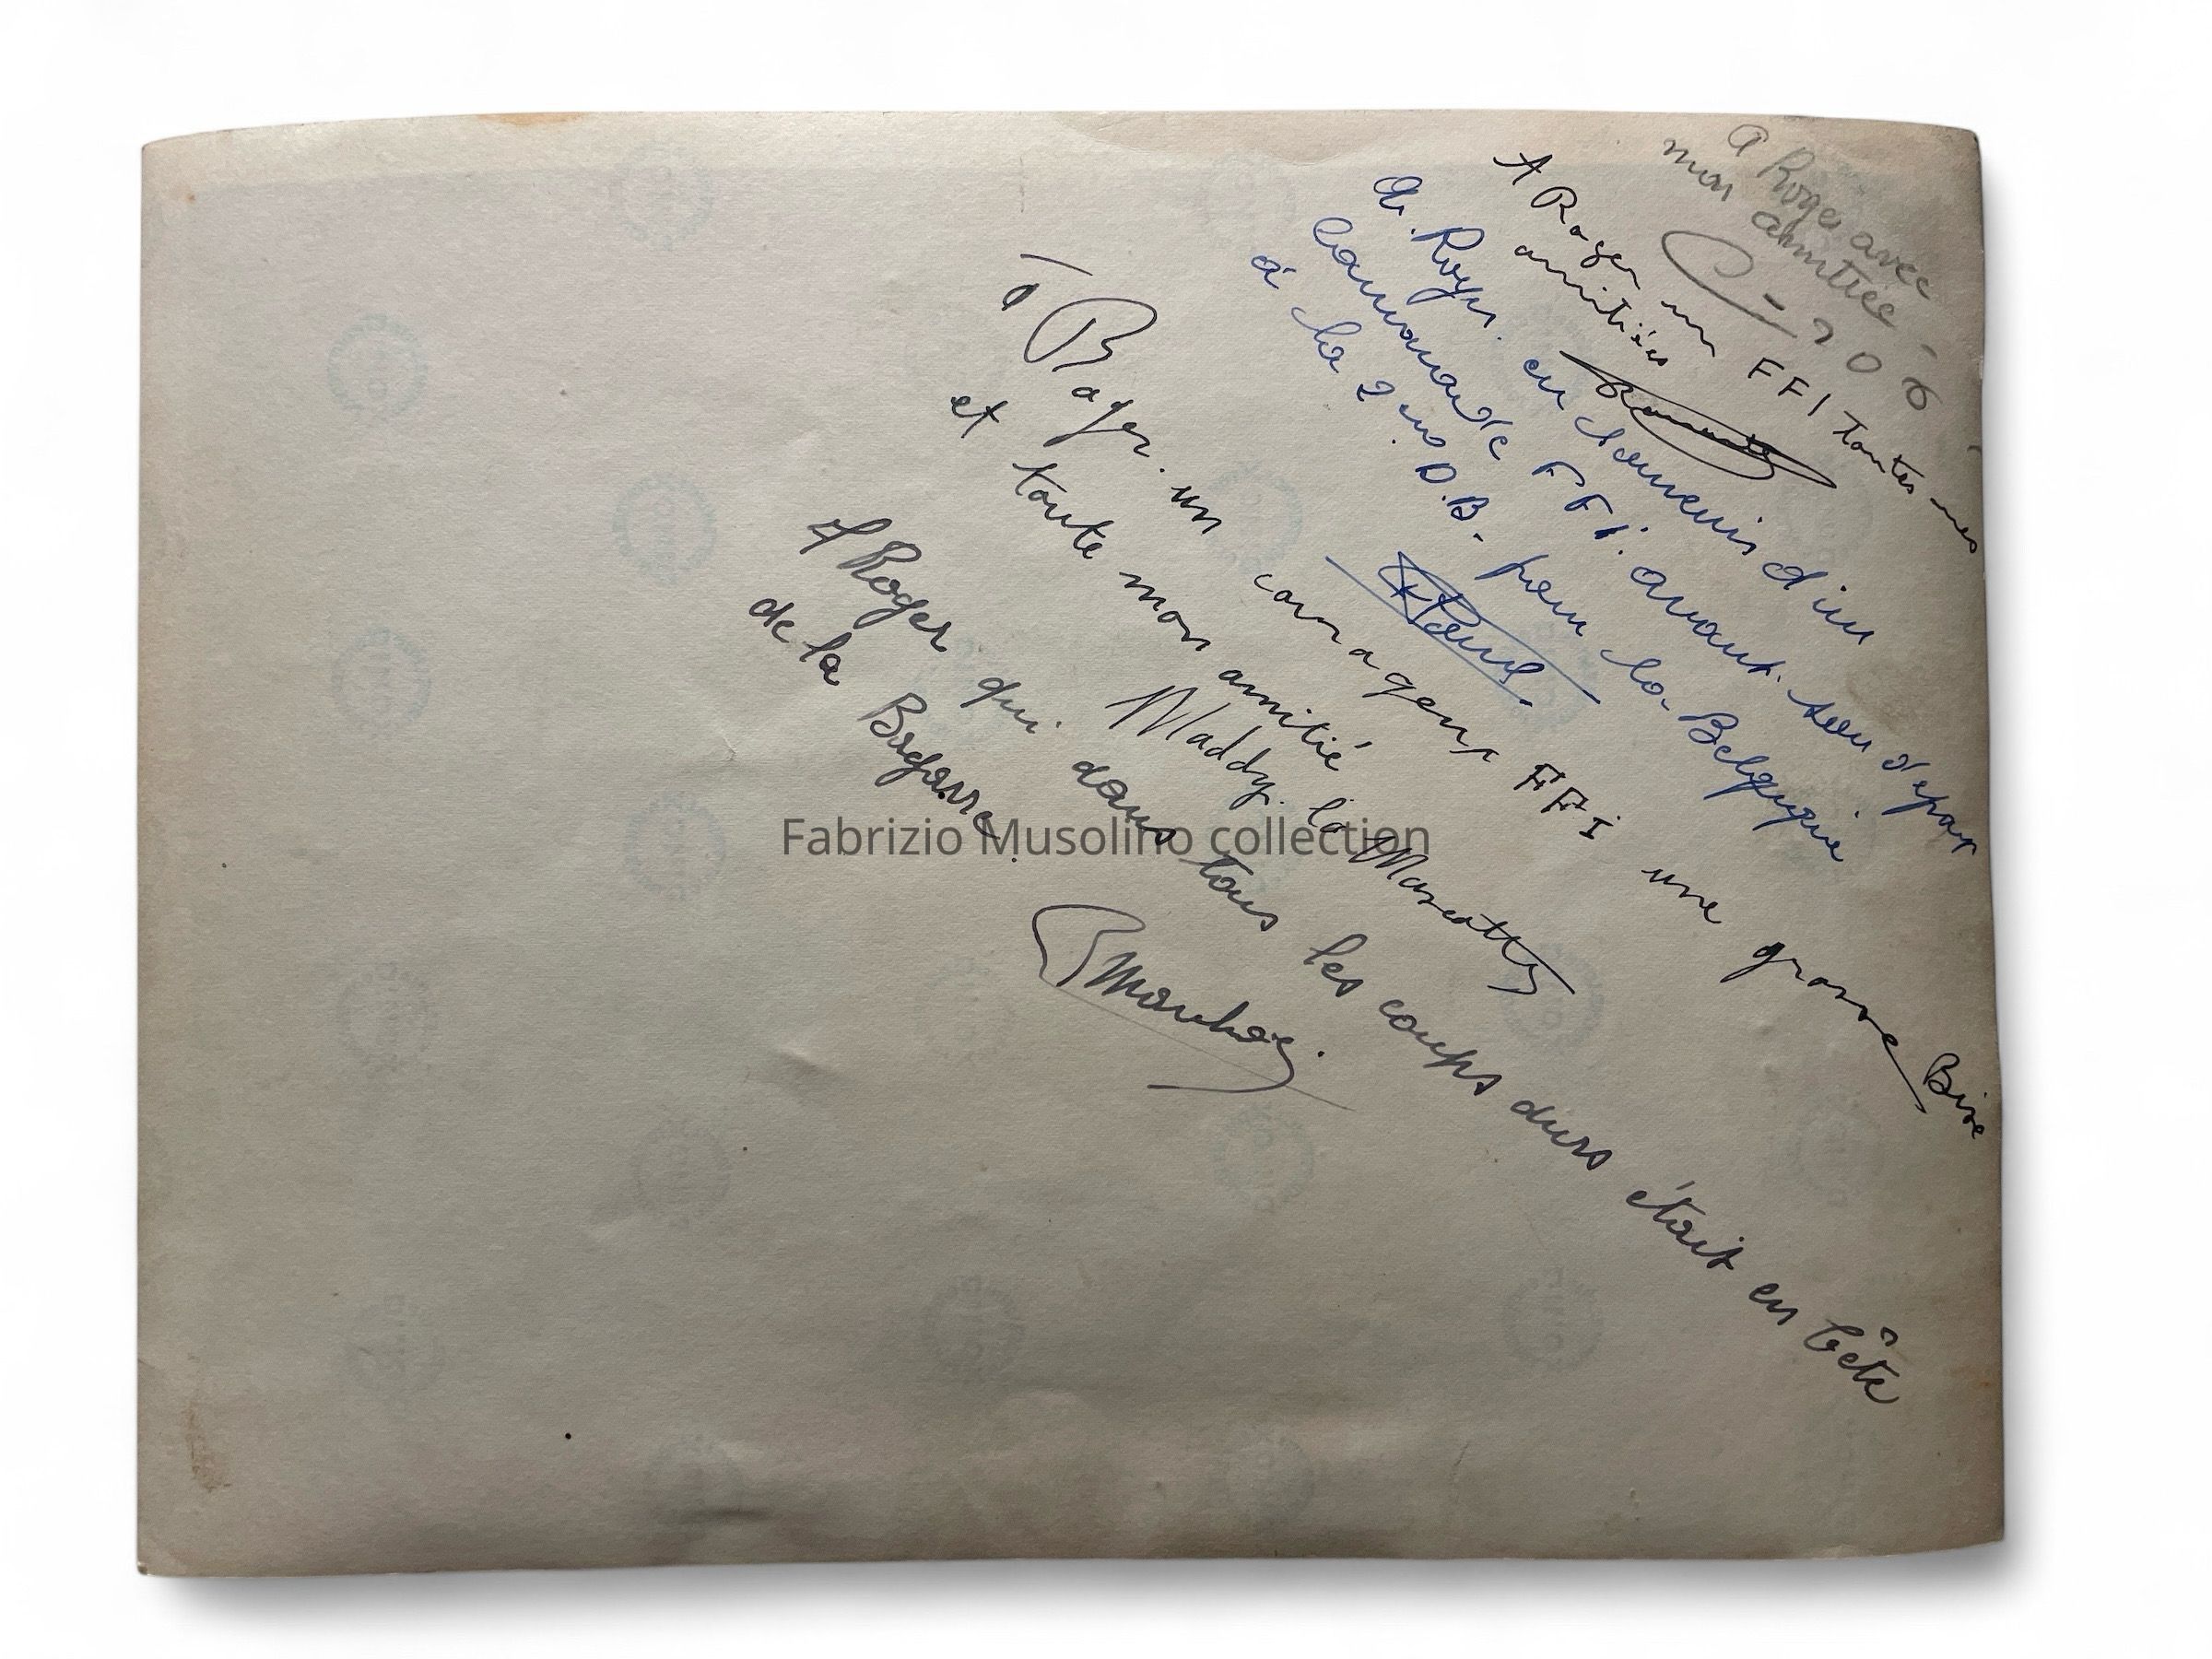 a Roger avec
mon amitiée -
C-706
A Roger un FFI toutes mes
amitiés
a. Roger. en souvenir d'un
camarade FFI. avant. son dépar
à la 2 eme D.B- pour la Belgique
Paul
à Roger. un courageux FFI une grosse Bise
et toute mon amitié
Maddy. la Mascotte
A Roger qui dans tous les coups durs était en tête
de la Bagarre.
Fabrizio Musolino collection